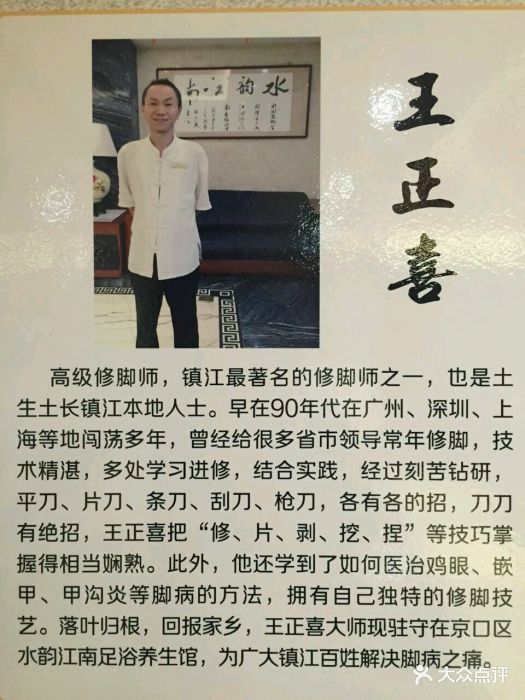 水韵江南
王正喜
高级修脚师，镇江最著名的修脚师之一，也是土
生土长镇江本地人士。早在90年代在广州、深圳、上
海等地闯荡多年，曾经给很多省市领导常年修脚，技
术精湛，多处学习进修，结合实践，经过刻苦钻研，
平刀、片刀、条刀、刮刀、枪刀，各有各的招，刀刀
有绝招，王正喜把“修、片、剥、挖、捏”等技巧掌
握得相当娴熟。此外，他还学到了如何医治鸡眼、嵌
甲、甲沟炎等脚病的方法，拥有自己独特的修脚技
艺。落叶归根，回报家乡，王正喜大师现驻守在京口区
水韵江南足浴养生馆，为广大镇江百姓解决脚病之痛。
大众点评